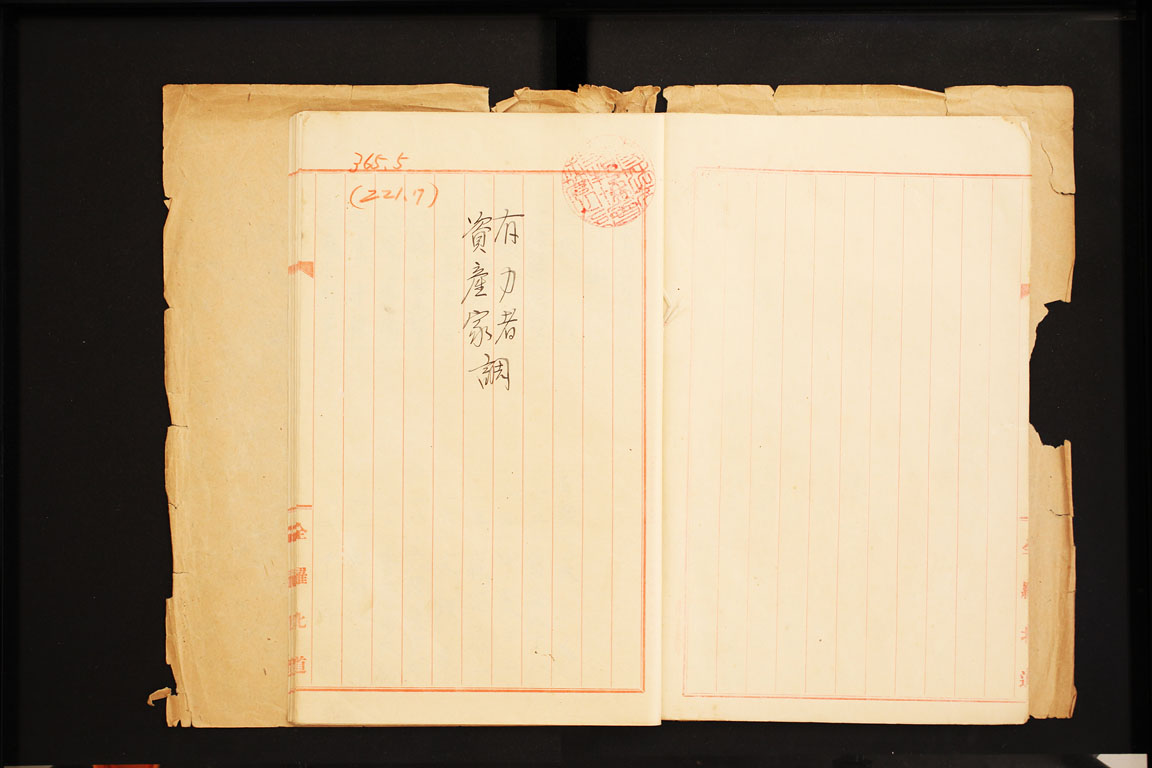 365.5
(221.7)
有力者
資産家調
全羅北道
全羅北道